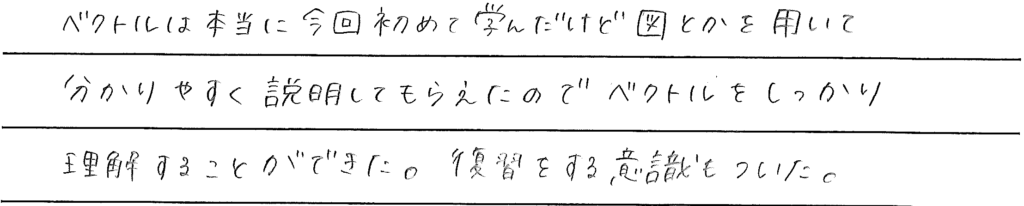 ベクトルは本当に今回初めて学んだけど図とかを用いて
分かりやすく説明してもらえたのでベクトルをしっかり
理解することができた。復習をする意識もついた。